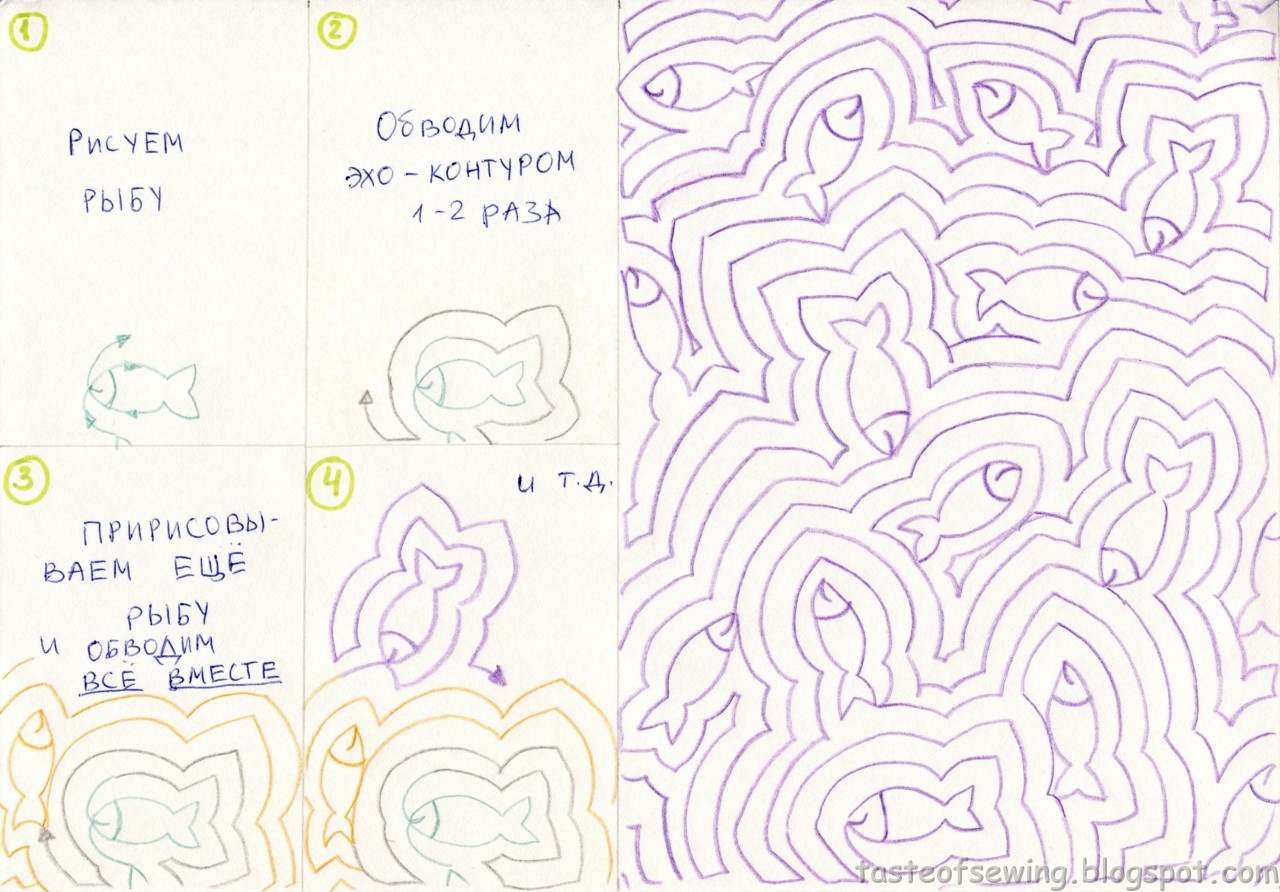 1
РИСУЕМ
РЫБУ
2
ОБВОДИМ
ЭХО - КОНТУРОМ
1-2 РАЗА
3
ПРИРИСОВЫ-
ВАЕМ ЕЩЁ
РЫБУ
И ОБВОДИМ
ВСЁ ВМЕСТЕ
4
И Т.Д.
tasteofsewing.blogspot.com